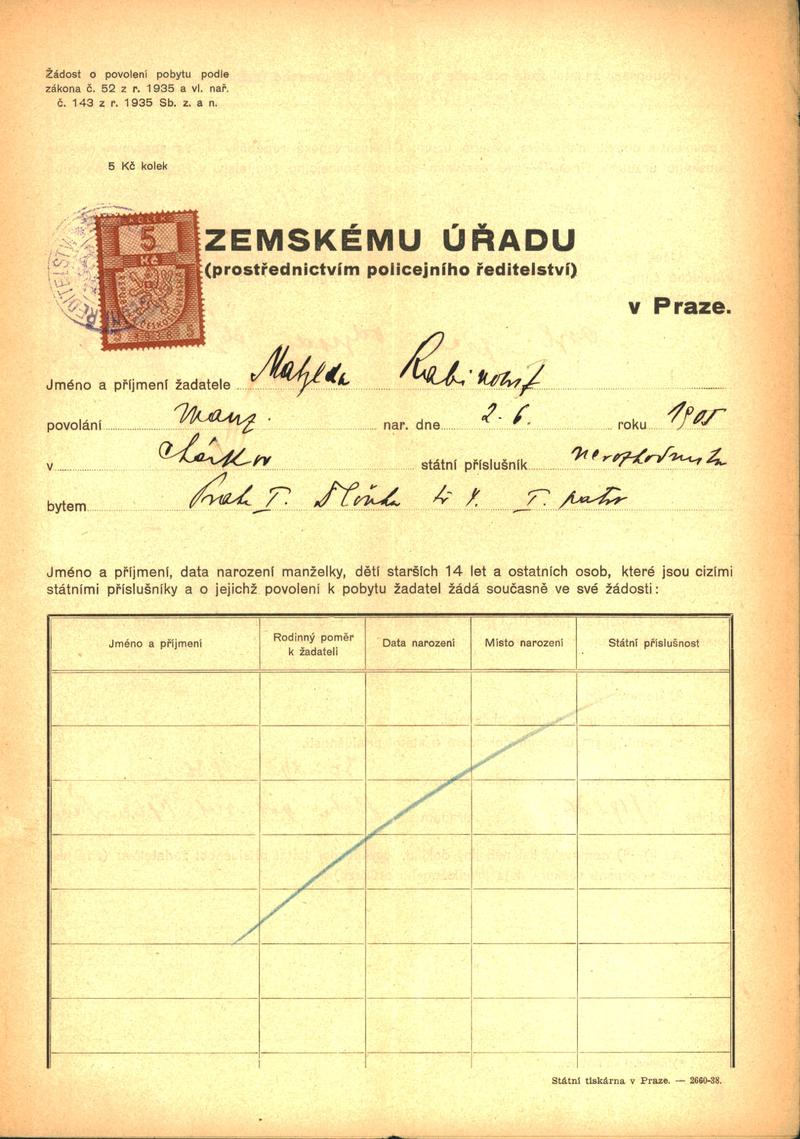 Žádost o povolení pobytu podle
zákona č. 52 z r. 1935 a vl. nař.
č. 143 z r. 1935 Sb. z. a n.
5 Kč kolek
KOLEK
5
Kč
ZEMSKÉMU ÚŘADU
(prostřednictvím policejního ředitelství)
v Praze.
Jméno a příjmení žadatele Matylda
povolání nar. dne 2. 6. roku 1905
v Charkov státní příslušník
bytem Praha I. Dlouhá I. patro
Jméno a příjmení, data narození manželky, dětí starších 14 let a ostatních osob, které jsou cizími
státními příslušníky a o jejichž povolení k pobytu žadatel žádá současně ve své žádosti:
Jméno a příjmení Rodinný poměr k žadateli Data narození Místo narození Státní příslušnost
Státní tiskárna v Praze. — 2660-38.